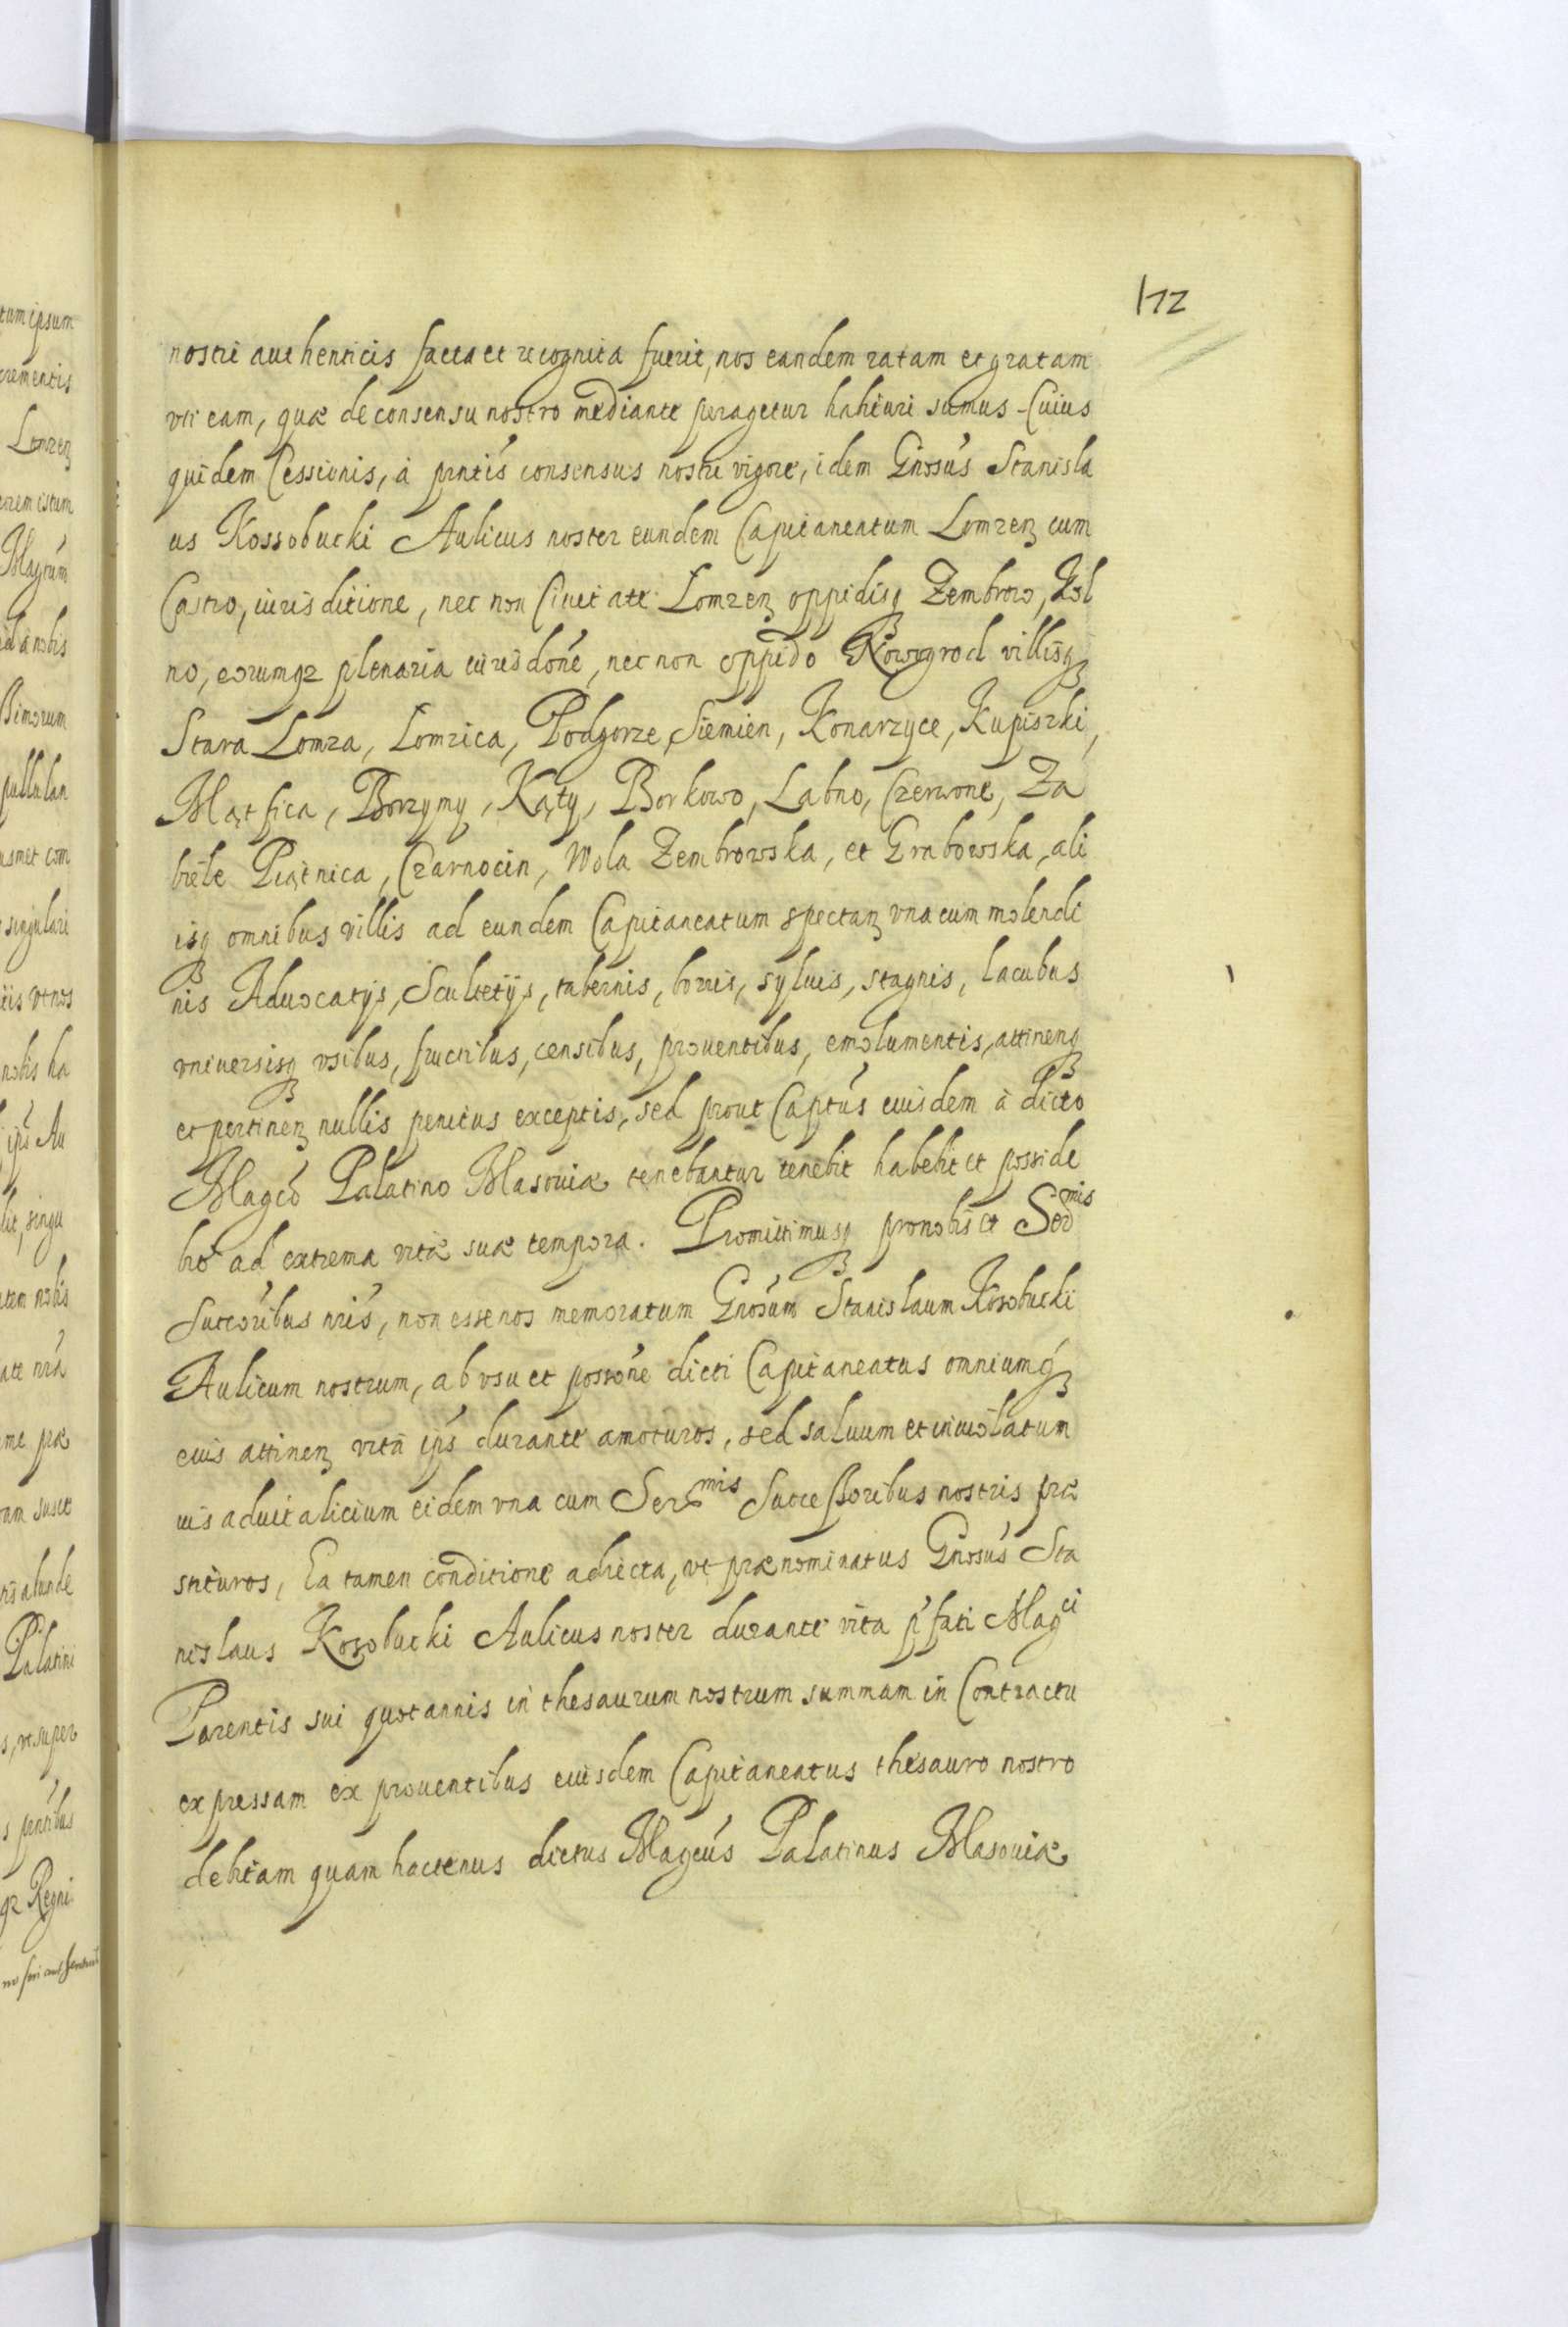 172
nostri authenticis facta et recognita fuerit, nos eandem ratam et gratam
vti eam, quæ de consensu nostro mediante peragetur habituri sumus Cuius
quidem Cessionis, à pntis consensus nostri vigore, idem Gnosus Stanisla
us Kossobucki Aulicus noster eundem Capitaneatum Lomzen cum
Castro, iurisditione, nec non Ciuitate Lomzen oppidisq Zembrow, Kol
no, eorumq plenaria iurisdone, nec non oppido Nowogrod villisq
Stara Lomza, Lomzica, Podgorze, Siemien, Konarzyce, Kupiszki,
Mątfica, Borzymy, Kąty, Borkowo, Labno, Czerwone, Za
biele Piątnica, Czarnocin, Wola Zembrowska, et Grabowska, ali
isq omnibus villis ad eundem Capitaneatum spectan vna cum molendi
nis Aduocatijs, Scultetijs, tabernis, borris, syluis, stagnis, lacubus
vniuersisq vsibus, fructibus, censibus, prouentibus, emolumentis, attinenq
et pertinen nullis penitus exceptis, sed prout Captus eiusdem à dicto
Magco Palatino Masouiæ tenebantur tenebit habebit et posside
bit ad extrema vitæ suæ tempora. Promittimusq pro nobis et Sermis
Succoribus nris, non esse nos memoratum Gnosum Stanislaum Kosobucki
Aulicum nostrum, ab vsu et possone dicti Capitaneatus omniumq
eius attinen vita ips durante amoturos, sed saluum et inuiolatum
ius aduitalicium eidem vna cum Sermis Successoribus nostris præ
stituros, Ea tamen conditione adiecta, vt prænominatus Gnosus Sta
nislaus Kosobucki Aulicus noster durante vita pfati Magci
Parentis sui quotannis in thesaurum nostrum summam in Contractu
expressam ex prouentibus eiusdem Capitaneatus thesauro nostro
debitam quam hactenus dictus Magcus Palatinus Masouiæ